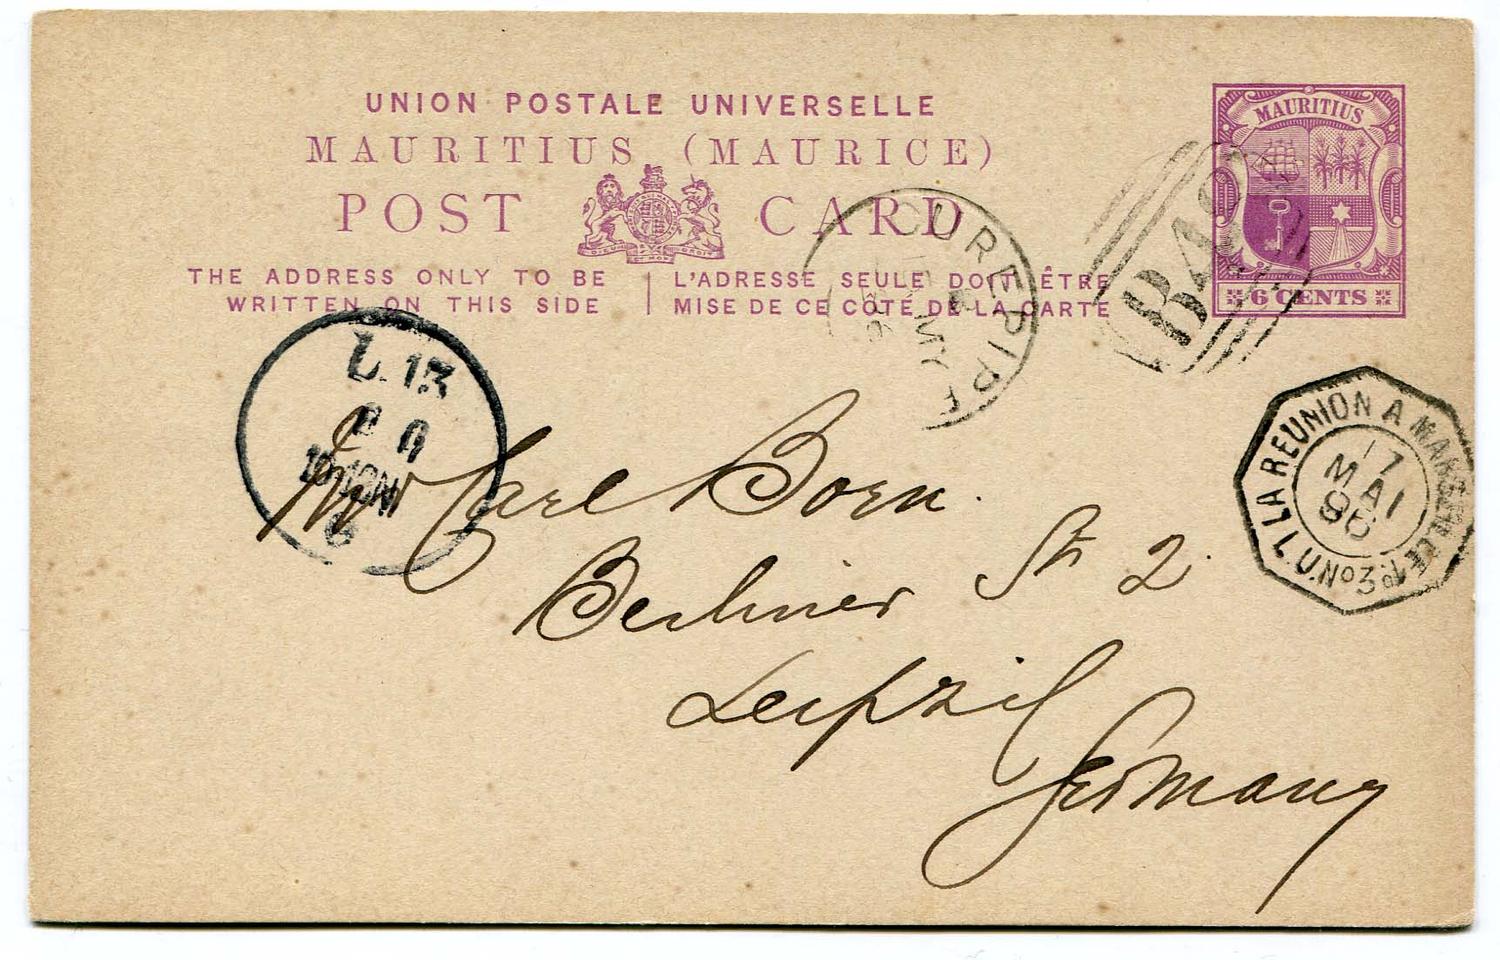 UNION POSTALE UNIVERSELLE
MAURITIUS (MAURICE)
POST CARD
THE ADDRESS ONLY TO BE
WRITTEN ON THIS SIDE
L'ADRESSE SEULE DOIT ÊTRE
MISE DE CE COTÉ DE LA CARTE
MAURITIUS
6 CENTS
CUREPIPE
MY
96
LA REUNION A MARSEILLE
L.U.No3
17
MAI
96
L. 13
Carl Born
Berliner Str 2
Leipzig
Germany